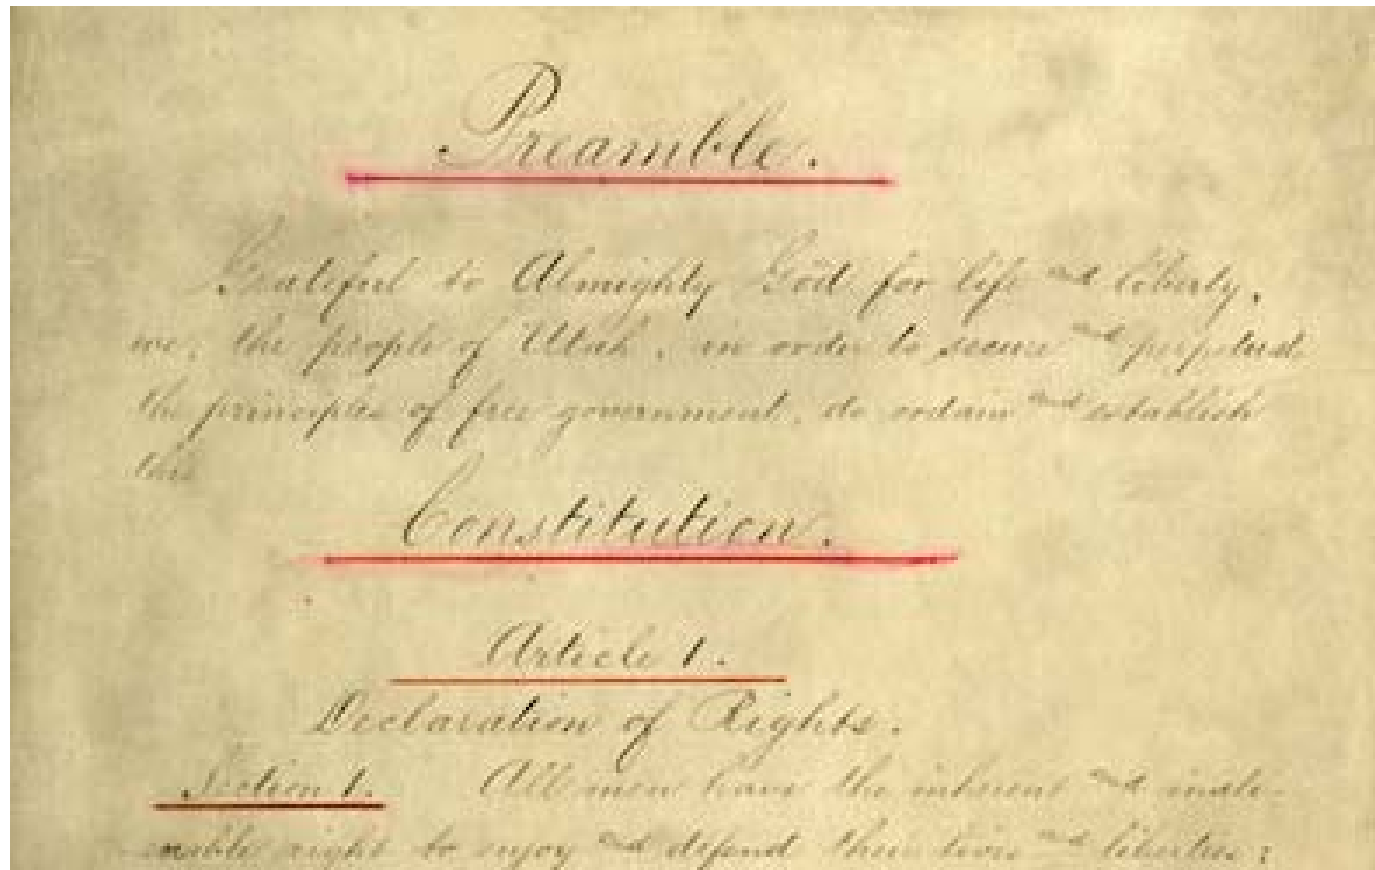 Preamble.
Grateful to Almighty God for life and liberty,
we, the people of Utah, in order to secure and perpetuate
the principles of free government, do ordain and establish
this
Constitution.
Article 1.
Declaration of Rights.
Section 1. All men have the inherent and inali-
enable right to enjoy and defend their lives and liberties;